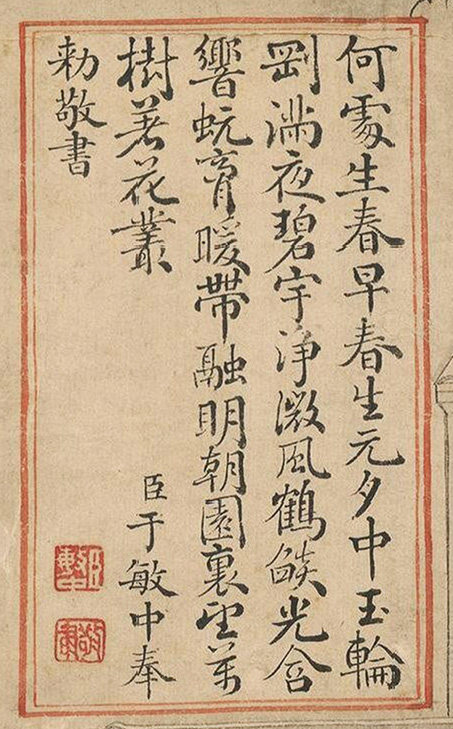 何處生春早春生元夕中玉輪
剛滿夜碧宇淨微風鶴燄光含
響蚖膏暖帶融明朝園裏望萬
樹著花叢 臣于敏中奉
勅敬書